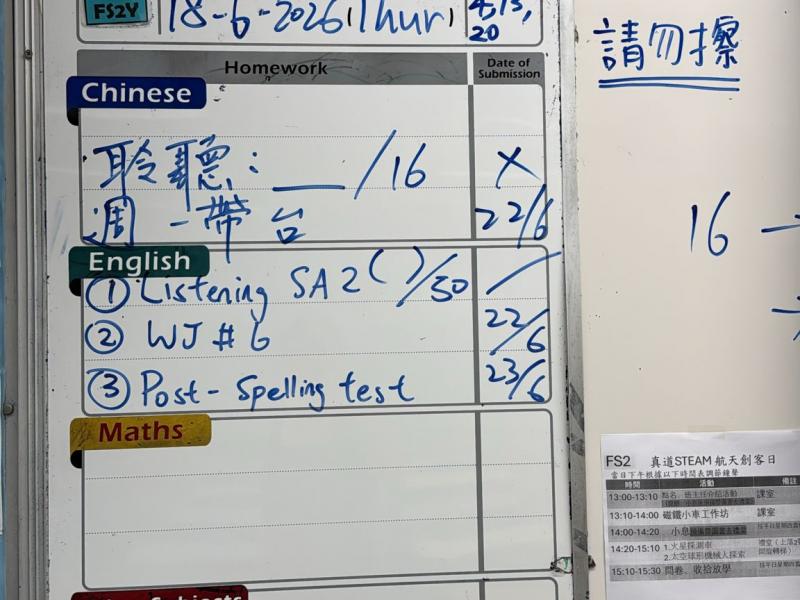 FS2Y
18-6-2026(Thur)
20
Homework
Date of Submission
Chinese
聆聽:___/16 X
週一帶台 22/6
English
① Listening SA2 ( )/50 /
② WJ #6 22/6
③ Post-Spelling test 23/6
Maths
請勿擦
16 →
FS2 真道STEAM 航天創客日
當日下午根據以下時間表調節鐘聲
時間 活動 備註
13:00-13:10 點名、班主任介紹活動 課室
13:10-14:00 磁鐵小車工作坊 課室
14:00-14:20 小息
14:20-15:10 1.火星探測車
2.太空球形機械人探索
15:10-15:30 問卷、收拾放學